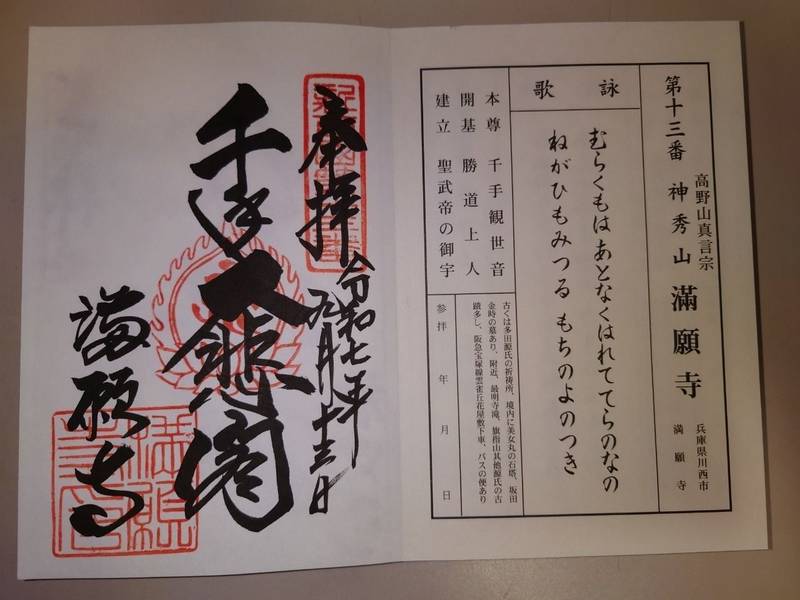 第十三番 高野山真言宗
神秀山 滿願寺
兵庫県川西市
満願寺
詠歌
むらくもは あとなくはれててらのなの
ねがひもみつる もちのよのつき
本尊 千手観世音
開基 勝道上人
建立 聖武帝の御宇
古くは多田源氏の祈祷所、境内に美女丸の石塔、坂田
金時の墓あり、附近、最明寺滝、旗指山其他源氏の古
蹟多し、阪急宝塚線雲雀丘花屋敷下車、バスの便あり
参拝 年 月 日
奉拝
令和七年
九月十三日
千手大悲閣
満願寺